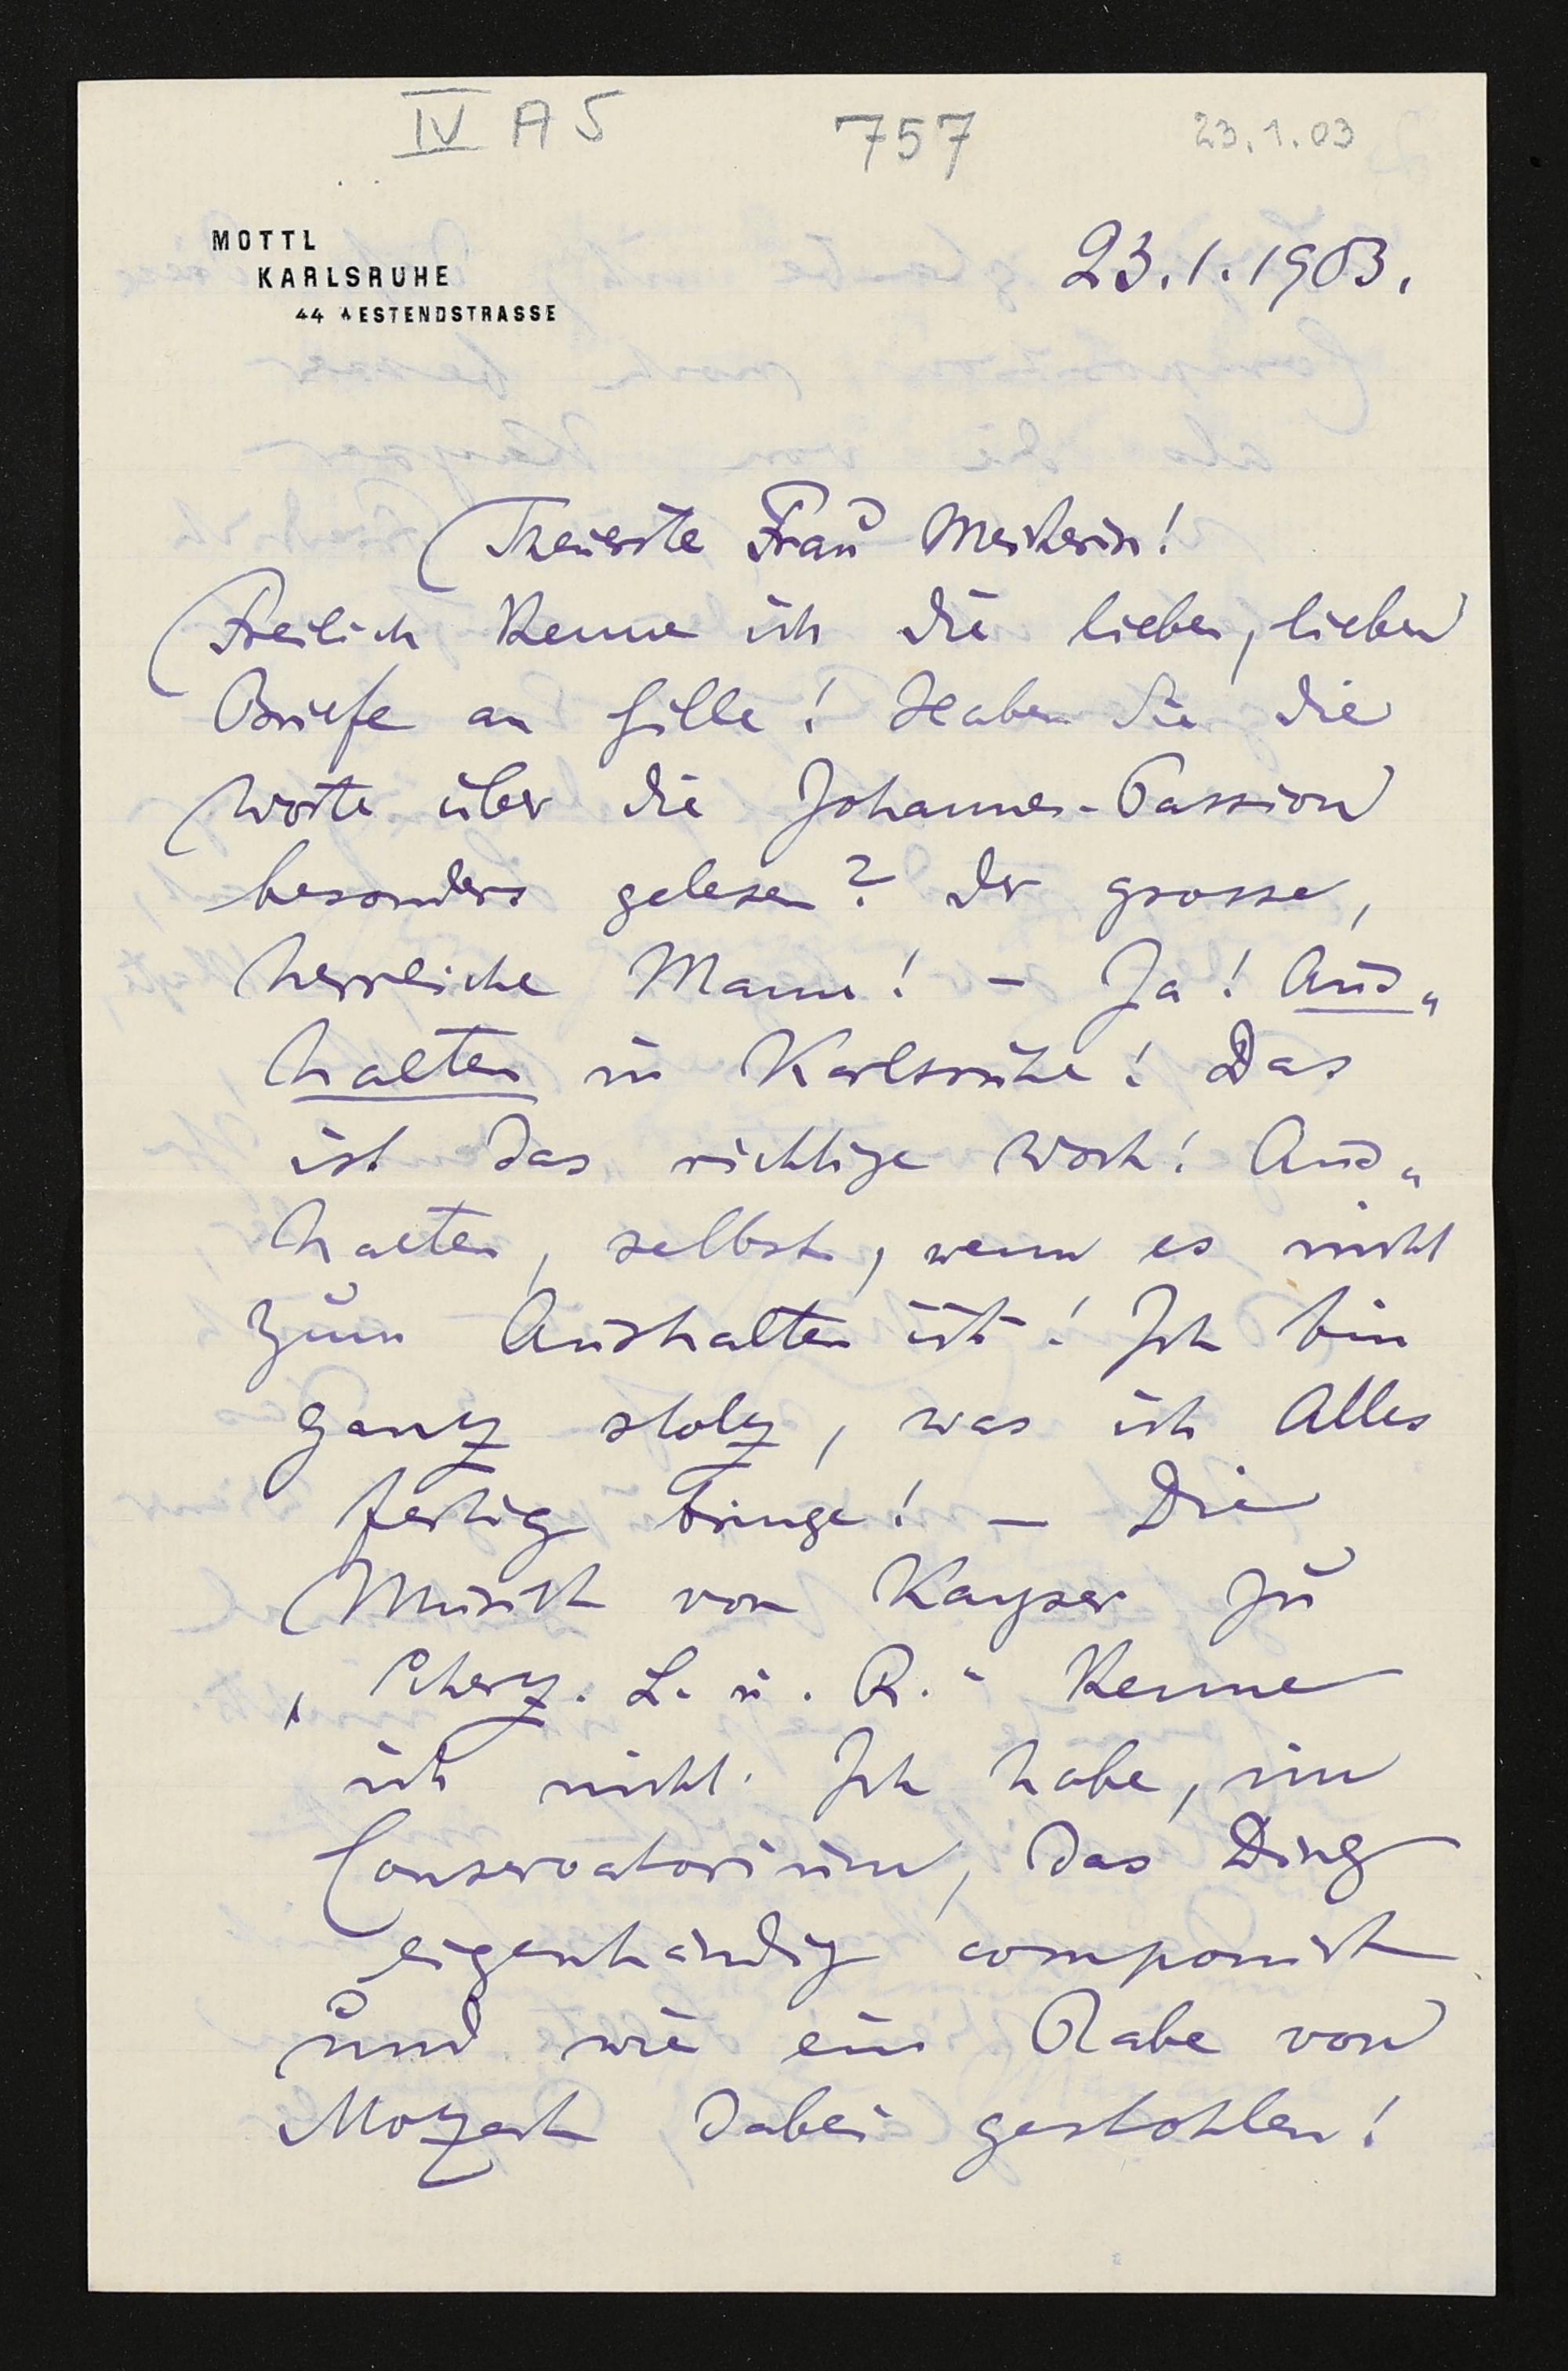 IV A 5 757 23.1.03
MOTTL
KARLSRUHE
44 WESTENDSTRASSE
23.1.1903.
Theuerste Frau Meisterin!
Freilich kenne ich die lieben, lieben
Briefe an Gille! Haben Sie die
Worte über die Johannes-Passion
besonders gelesen? Der grosse,
herrliche Mann! – Ja! Aus„
halten in Karlsruhe! Das
ist das richtige Wort! Aus„
halten, selbst, wenn es nicht
zum Aushalten ist! Ich bin
ganz stolz, was ich Alles
fertig bringe! – Die
Musik von Kayser zu
„Scherz. L. u. R.“ kenne
ich nicht. Ich habe, im
Conservatorium, das Ding
eigenhändig componirt
und wie ein Rabe von
Mozart dabei gestohlen!